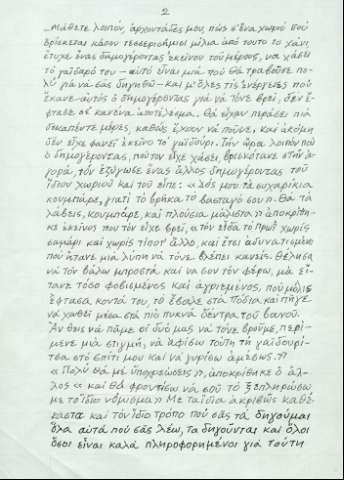 2
–Μάθετε λοιπόν, άρχοντάδες μου, πώς σ'ένα χωριό πού
βρίσκεται κάπου τεσσεριςήμισι μίλια από τούτο το χάνι
έτυχε ένας δημογέροντας εκείνου τού μέρους, να χάσει
το γαϊδαρό του – αυτό είναι μιά πού θά τραβούσε πο-
λύ για νά σάς διηγηθώ – καί μ'όλες τίς ενέργειες πού
έκανε αυτός ο δημογέροντας γιά νά τόνε βρει, δέν έ-
φτασε σέ κανένα αποτέλεσμα. Θά είχαν περάσει πιά
δεκαπέντε μέρες, καθώς έχουν νά πούνε, καί ακόμη
δέν είχε φανεί εκείνο το γαϊδούρι. Τήν ώρα λοιπόν πού
ο δημογέροντας, πού τον είχε χάσει, βρισκότανε στήν α-
γορά, τόν εζύγωσε ένας άλλος δημογέροντας τού
ίδιου χωριού καί τού είπε: « Δός μου τά συχαρίκια
κουμπάρε, γιατί το βρήκα το βασταγό σου ». Θά τά
λάβεις, κουμπάρε, καί πλούσια μάλιστα » αποκρίθη-
κε εκείνος πού τόν είχε βρεί, « τόν είδα το πρωΐ χωρίς
σαμάρι καί χωρίς τίποτ' άλλο, καί έτσι αδυνατισμένο
πού ήτανε μιά λύπη νά τόνε βλέπει κανείς. Θέλησα
νά τόν βάλω μπροστά καί να σου τόν φέρω, μά εί-
τανε τόσο φοβισμένος καί αγριεμένος, πού μόλις
έφτασα κοντά του, το έβαλε στά πόδια καί πήγε
νά χαθεί μέσα στά πιό πυκνά δέντρα τού βουνού.
Άν θές νά πάμε οί δυό μας νά τόνε βρούμε, περί-
μενε μιά στιγμή, νά αφήσω τούτη τή γαϊδουρί-
τσα στό σπίτι μου καί νά γυρίσω αμέσως.»
« Πολύ θά μέ υποχρεώσεις », αποκρίθηκε ο άλ-
λος « καί θά φροντίσω νά σού τό ξεπληρώσω
με το ίδιο νόμισμα » Με τα ίδια ακριβώς καθέ-
καστα καί τόν ίδιο τρόπο πού σάς τά διηγούμαι
όλα αυτά πού σάς λέω, τα διηγούνται καί όλοι
όσοι είναι καλά πληροφορημένοι γιά τούτη